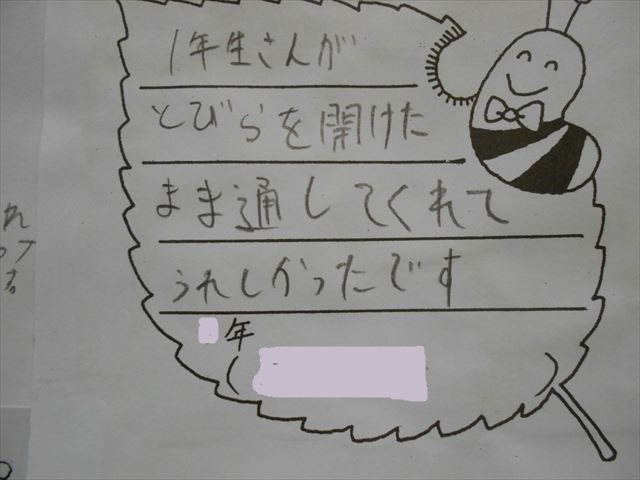 1年生さんが
とびらを開けた
まま通してくれて
うれしかったです
年